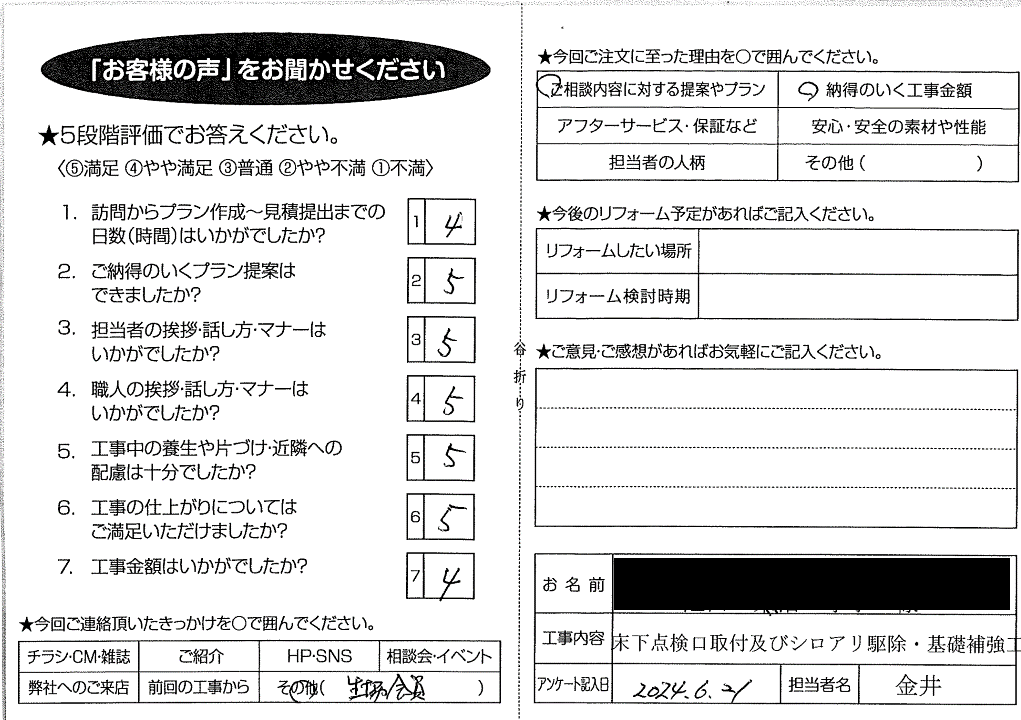 「お客様の声」をお聞かせください
★5段階評価でお答えください。
〈⑤満足 ④やや満足 ③普通 ②やや不満 ①不満〉
1. 訪問からプラン作成〜見積提出までの
日数(時間)はいかがでしたか?
1 4
2. ご納得のいくプラン提案は
できましたか?
2 5
3. 担当者の挨拶・話し方・マナーは
いかがでしたか?
3 5
4. 職人の挨拶・話し方・マナーは
いかがでしたか?
4 5
5. 工事中の養生や片づけ・近隣への
配慮は十分でしたか?
5 5
6. 工事の仕上がりについては
ご満足いただけましたか?
6 5
7. 工事金額はいかがでしたか?
7 4
★今回ご連絡頂いたきっかけを〇で囲んでください。
チラシ・CM・雑誌 ご紹介 HP・SNS 相談会・イベント
弊社へのご来店 前回の工事から その他( )
谷折り
★今回ご注文に至った理由を〇で囲んでください。
ご相談内容に対する提案やプラン 納得のいく工事金額
アフターサービス・保証など 安心・安全の素材や性能
担当者の人柄 その他( )
★今後のリフォーム予定があればご記入ください。
リフォームしたい場所
リフォーム検討時期
★ご意見・ご感想があればお気軽にご記入ください。
お名前
工事内容 床下点検口取付及びシロアリ駆除・基礎補強工
アンケート記入日 2024.6.21 担当者名 金井